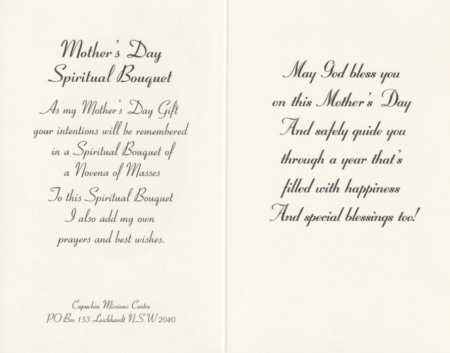 Mother's Day
Spiritual Bouquet
As my Mother's Day Gift
your intentions will be remembered
in a Spiritual Bouquet of
a Novena of Masses
To this Spiritual Bouquet
I also add my own
prayers and best wishes.
Capuchin Missions Centre
PO Box 153 Leichhardt N.S.W 2040
May God bless you
on this Mother's Day
And safely guide you
through a year that's
filled with happiness
And special blessings too!